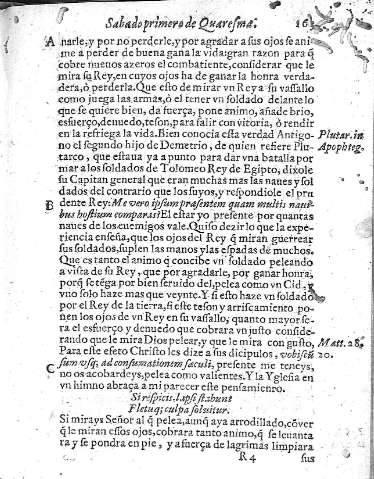 Sabado primero de Quaresma.
A narle, y por no perderle, y por agradar a sus ojos se ani
me a perder de buena gana la vida: gran razon para q̃
cobre nueuos azeros el combatiente, considerar que le
mira su Rey, en cuyos ojos ha de ganar la honra verda-
dera, ò perderla. Que esto de mirar vn Rey a su vassallo
como juega las armas, ò el tener vn soldado delante lo
que se quiere bien, da fuerça, pone animo, añade brio,
esfuerço, denuedo, teson, para salir con vitoria, ô rendir
en la refriega la vida. Bien conocia esta verdad Antigo-
no el segundo hijo de Demetrio, de quien refiere Plu-
tarco, que estaua ya a punto para dar vna batalla por
mar a los soldados de Tolomeo Rey de Egipto, dixole
su Capitan general que eran muchas mas las naues y sol
dados del contrario que los suyos, y respondiole el pru
dente Rey: Me vero ipsum præsentem quam multis naui-
B bus hostium comparas? El estar yo presente por quantas
naues de los enemigos vale. Quiso dezirlo que la expe-
riencia enseña, que los ojos del Rey q̃ miran guerrear
sus soldados, suplen las manos y las espadas de muchos.
Que es tanto el animo q̃ concibe vn soldado peleando
a vista de su Rey, que por agradarle, por ganar honra,
porq̃ se tẽga por bien seruido del, pelea como vn Cid, y
vno solo haze mas que veynte. Y si esto haze vn soldado
por el Rey de la tierra, si este teson y arriscamiento po-
nen los ojos de vn Rey en su vassallo, quanto mayor se-
ra el esfuerço y denuedo que cobrara vn justo conside-
rando que le mira Dios pelear, y que le mira con gusto,
Para este efeto Christo les dize a sus dicipulos, vobiscũ
C sum vsq; ad consummationem sæculi, presente me teneys,
no os acobardeys, pelea como valientes. Y la Yglesia en
vn himno abraça a mi parecer este pensamiento.
Si respicis, lapsi stabunt
Fletuq; culpa soluitur.
Si mirays Señor al q̃ pelea, aunq̃ aya arrodillado, cõ ver
q̃ le miran essos ojos, cobrara tanto animo, q̃ se leuanta
ra y se pondra en pie, y a fuerça de lagrimas limpiara
R 4 sus
Plutar. in
Apophteg.
Matt. 28.
20.